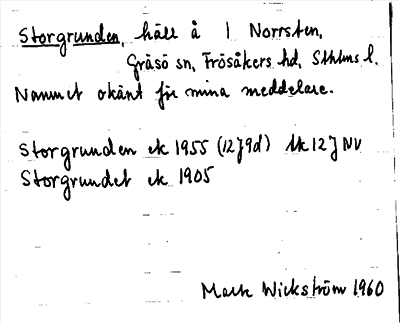 Storgrunden, häll å 1 Norrsten,
Gräsö sn, Frösåkers hd, Sthlms l.
Namnet okänt för mina meddelare.
Storgrunden ek 1955 (12J9d) tk 12J NV
Storgrundet ek 1905
Mark Wickström 1960